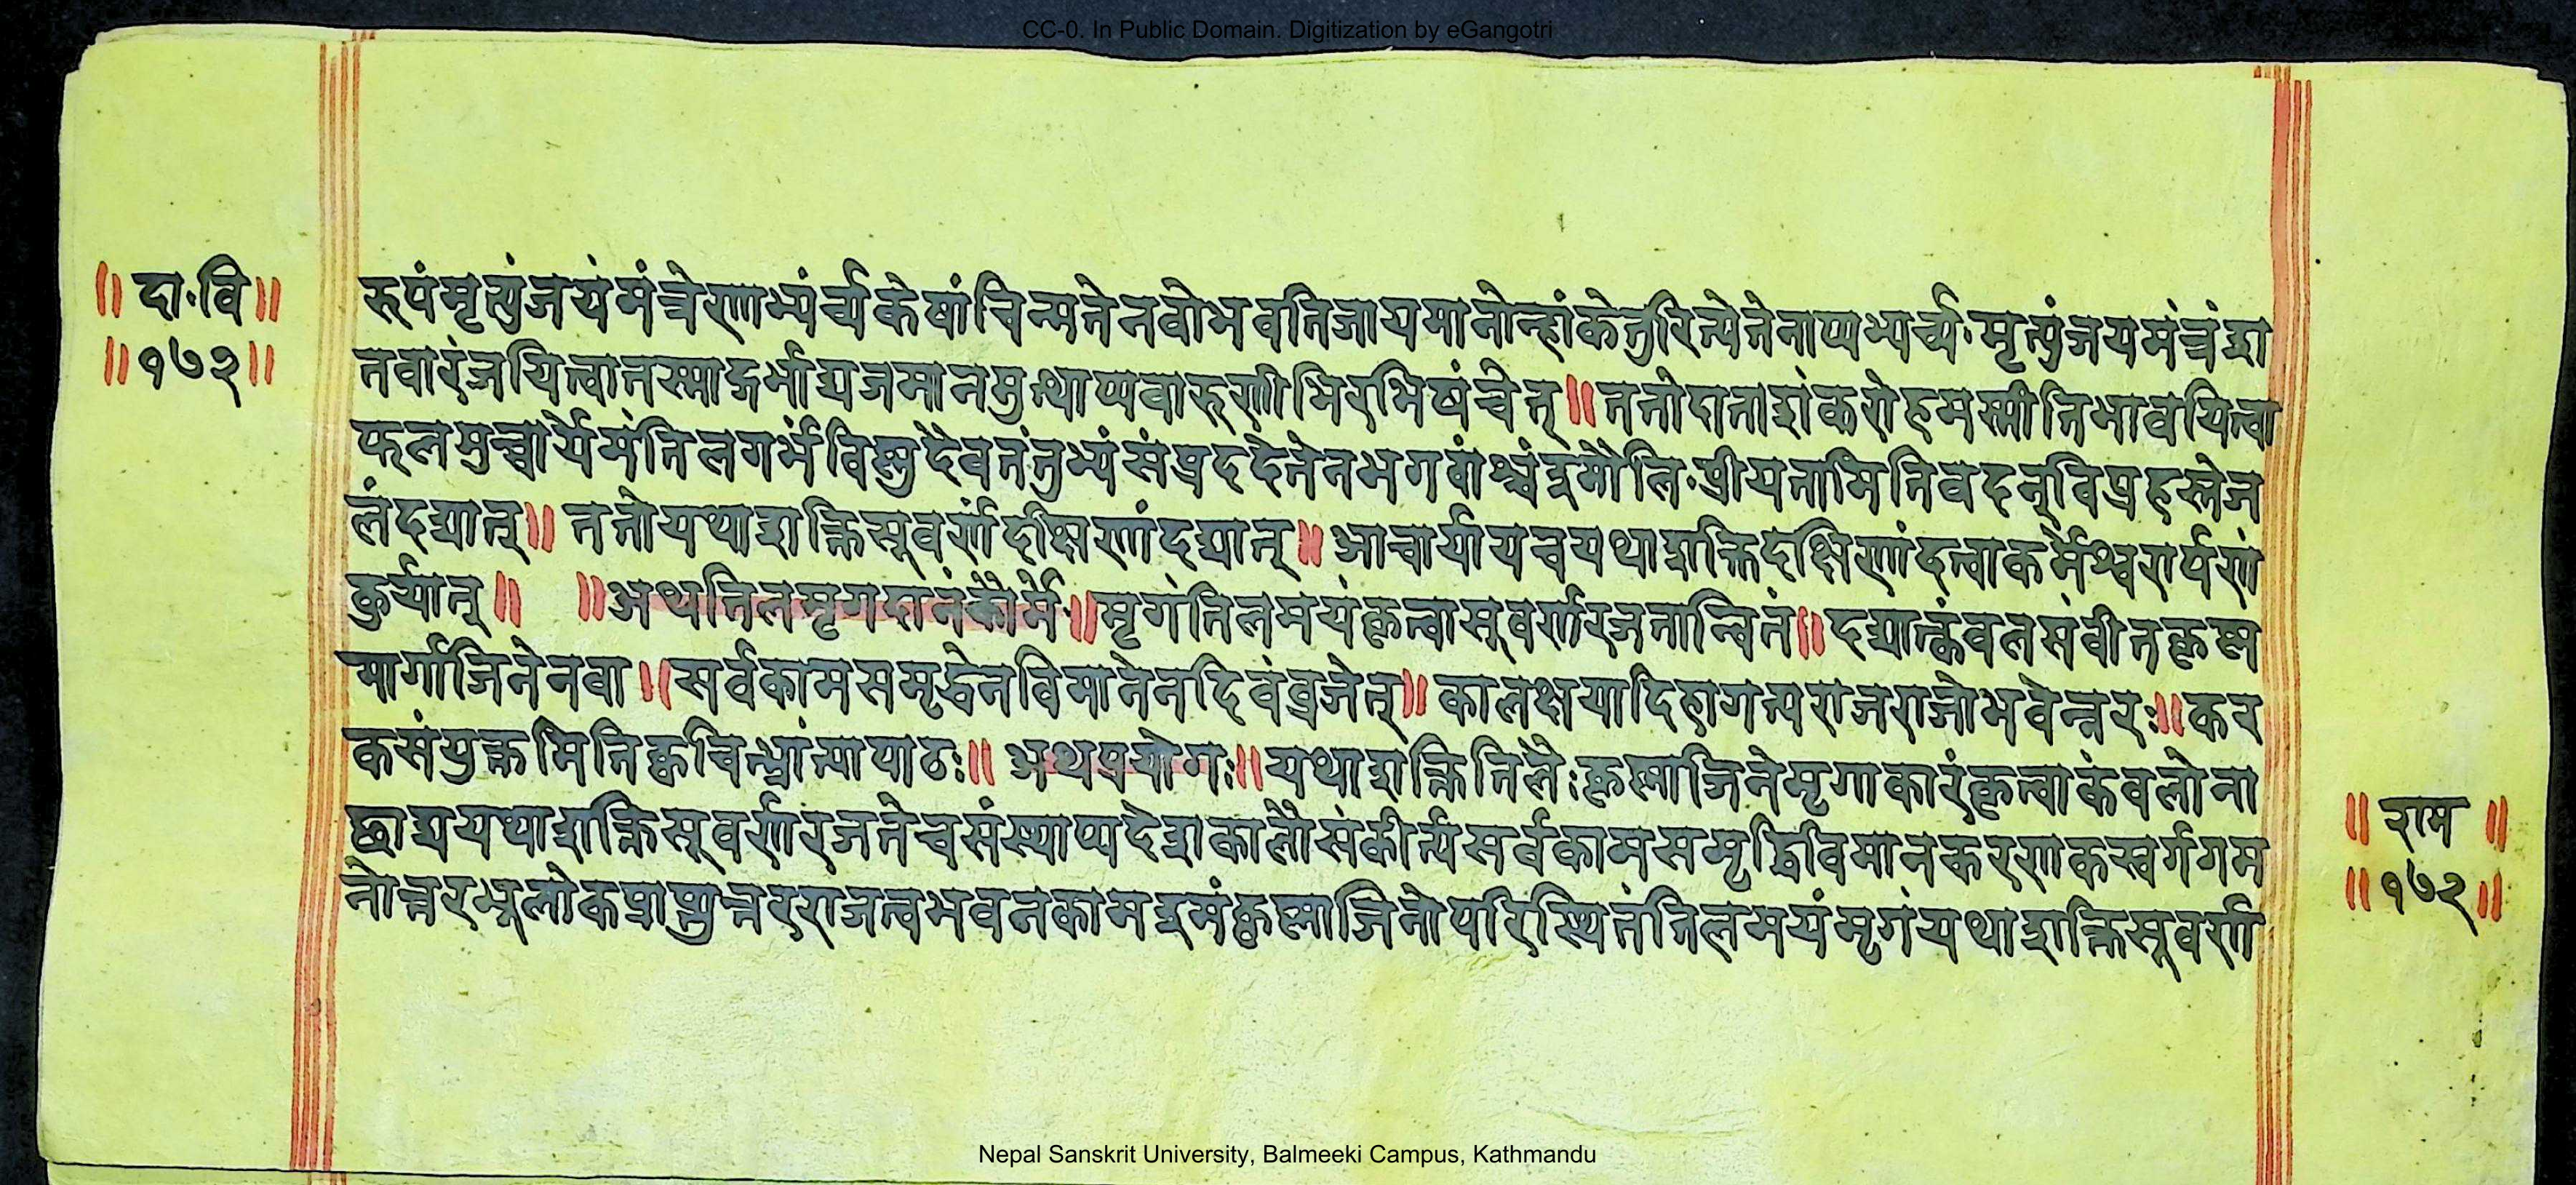 CC-0. In Public Domain. Digitization by eGangotri
॥ दा॰वि॥
॥१७२॥
रूपंमृत्युंजयंमंत्रेणाभ्यंर्च्यकेषांचिन्मतेनवोभवतिजायमानोन्हांकेतुरित्येतेनाप्यभ्यर्च्य॰मृत्युंजयमंत्रंशा
तवारंजयित्वातस्माद्गर्भाद्यजमानमुत्थाप्यवारुणीभिरभिषंचेत्॥ततोदाताशंकरोहमस्मीतिभावयित्वा
फलमुच्चार्येमंतिलगर्भंविष्णुदैवतंतुभ्यंसंप्रददेतेनभगवांश्चंद्रमौलि॰प्रीयतामितिवदन्विप्रहस्तेज
लंदद्यात्॥ ततोयथाशक्तिसुवर्णंदक्षिणांदद्यात्॥आचार्यायचयथाशक्तिदक्षिणांदत्वाकर्मेश्वरार्पणं
कुर्यात्॥ ॥अथतिलमृगदानंकौर्मे॥मृगंतिलमयंकृत्वासुवर्णरजतान्वितं॥दद्यात्कंवलसंवीतकृष्ण
मार्गाजिनेनवा॥सर्वकामसमृद्धेनविमानेनदिवंव्रजेत्॥कालक्षयादिहागत्यराजराजोभवेन्नरः॥कन
कसंयुक्तमितिक्वचिन्भ्रांत्यापाठः॥ अथप्रयोगः॥यथाशक्तितिलैःकृष्णाजिनेमृगाकारंकृत्वाकंवलोना
छाद्ययथाशक्तिसुवर्णरजतेचसंस्थाप्यदेशकालौसंकीर्त्यसर्वकामसमृद्धिविमानकरणकस्वर्गगम
नोत्तरभूलोकप्राप्त्युत्तरराजत्वभवनकामइमंकृष्णाजिनोपरिस्थितंतिलमयंमृगंयथाशक्तिसुवर्ण
॥ राम ॥
॥१७२॥
Nepal Sanskrit University, Balmeeki Campus, Kathmandu